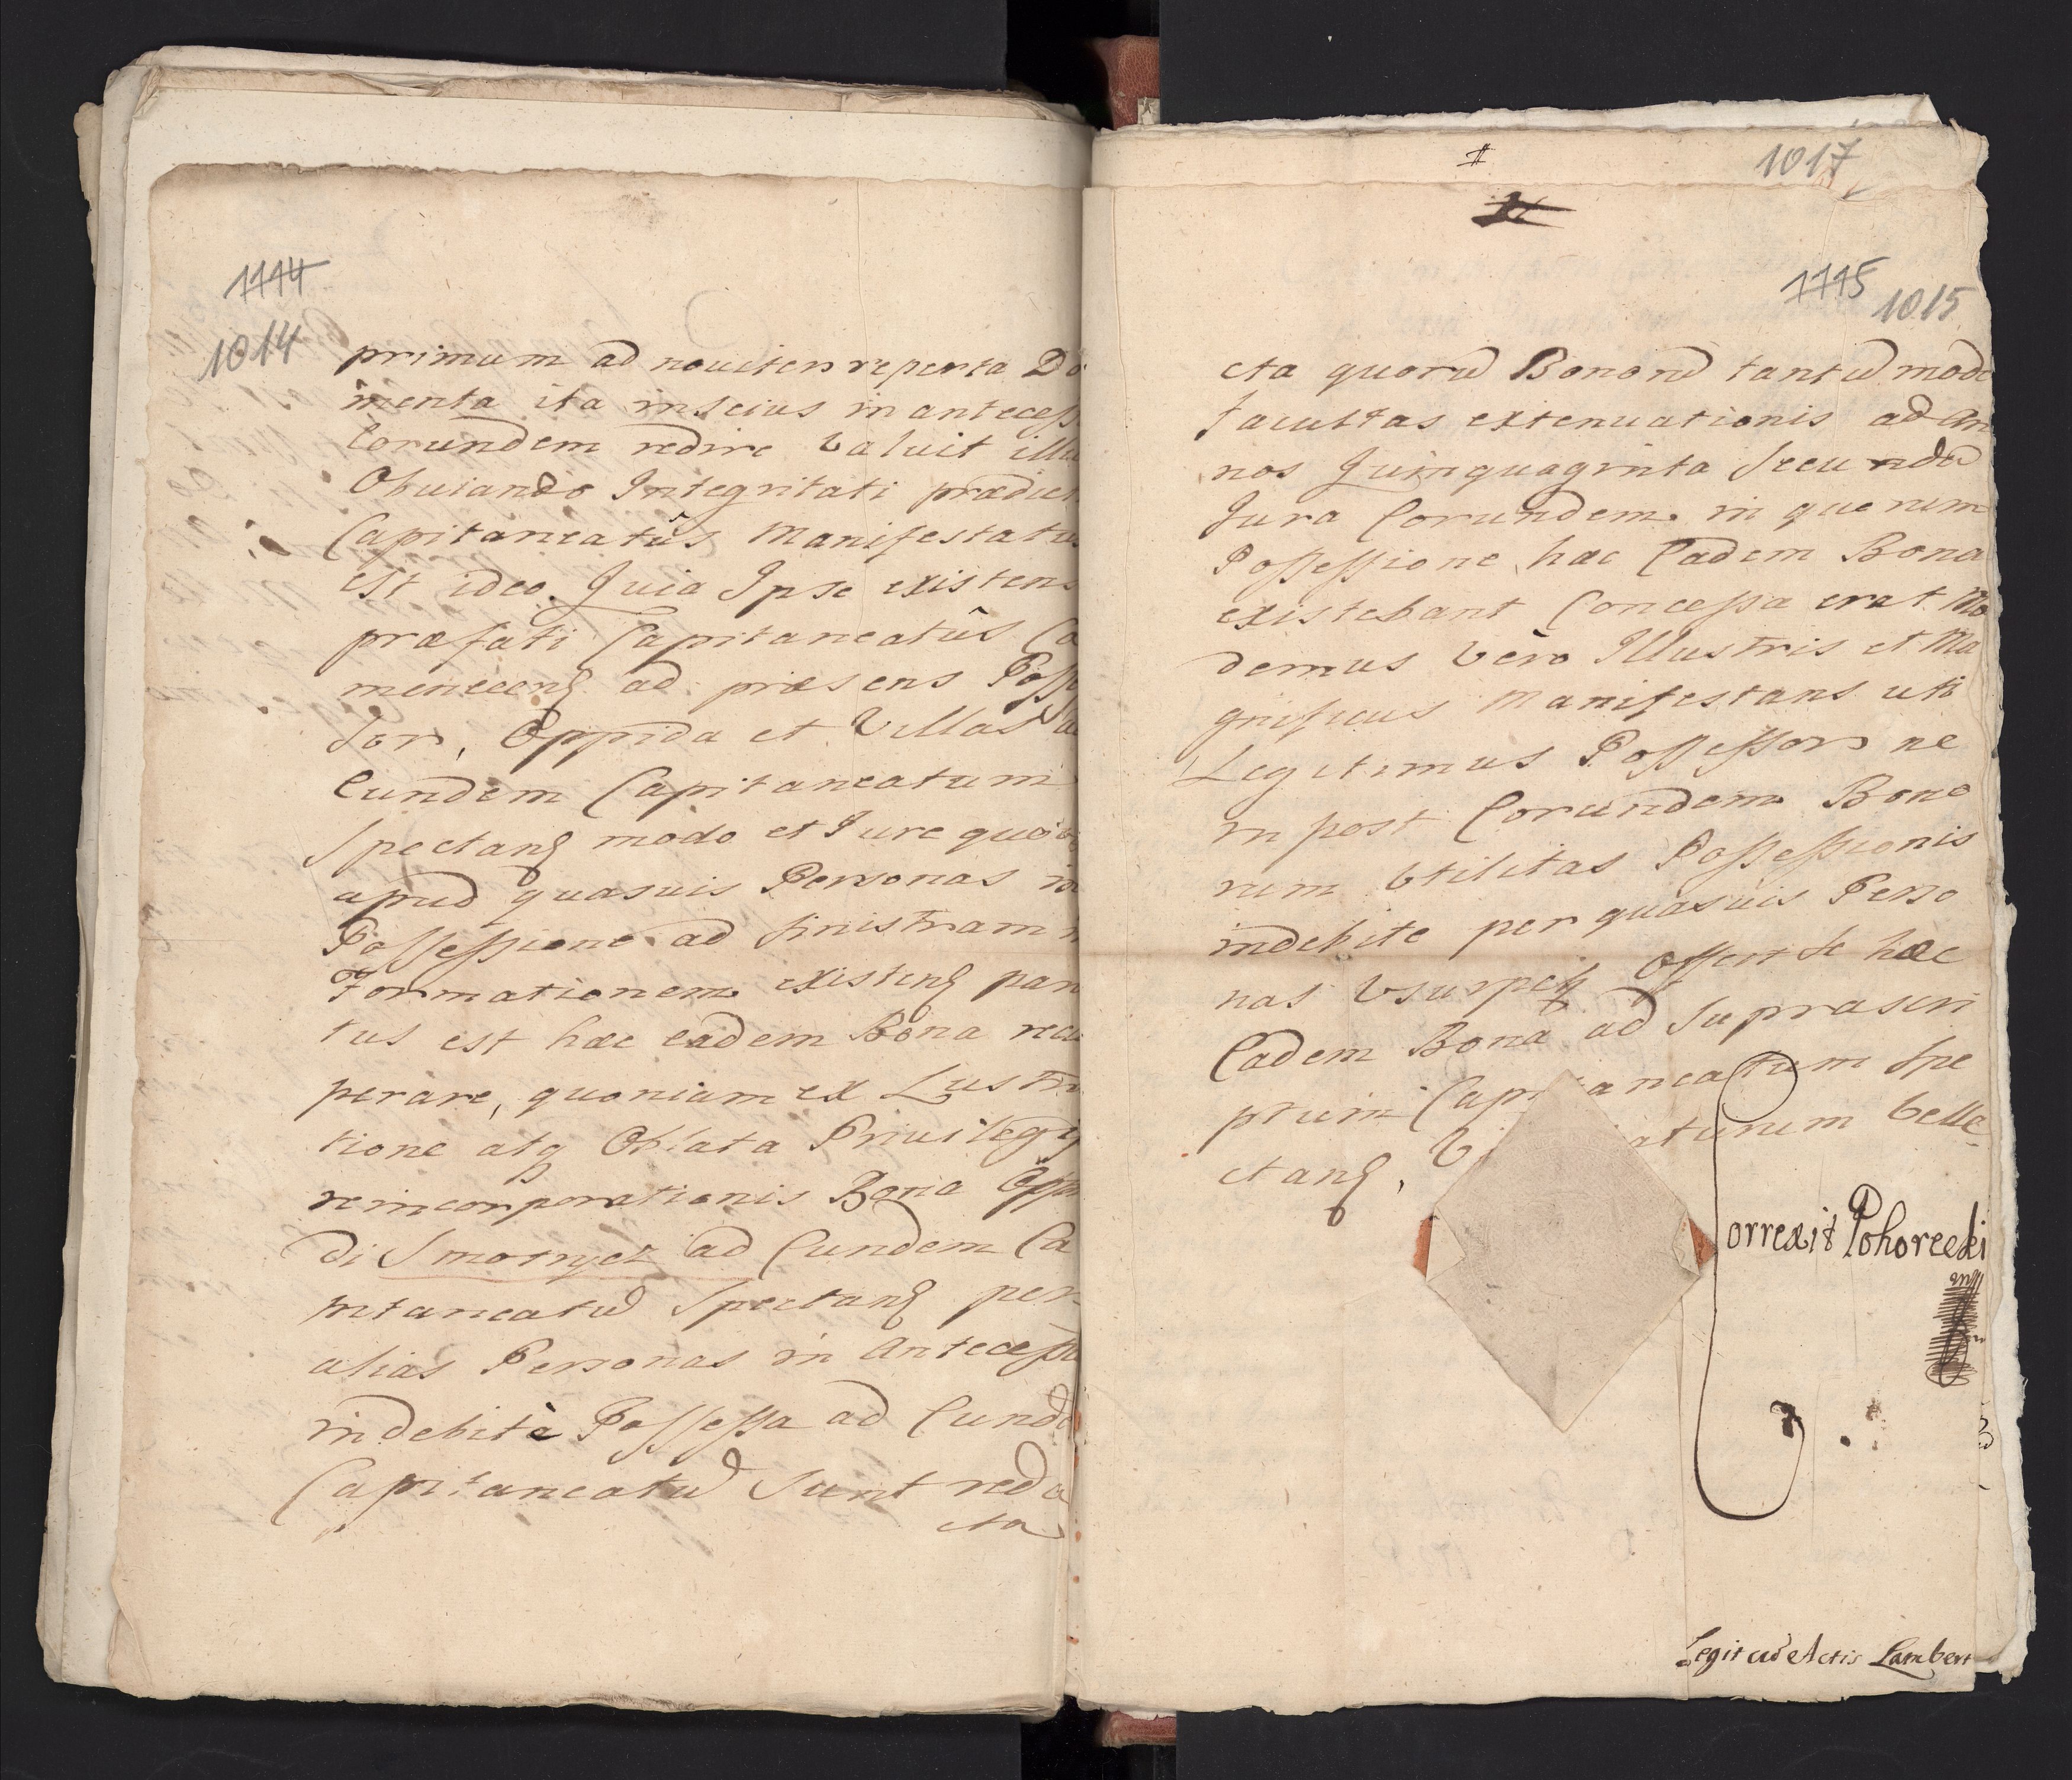 1114
1014
primum ad noviter reperta Do
menta ita inscius in antecess
Eorundem redire Valuit illu
Obuiando Integritati prædict
Capitaneatûs Manifestatus
est ideo Quia Ipse existens
præfati Capitaneatûs Ca
menecens ad præsens Posse
sor, Oppida et Villas
Eundem Capitaneatum
Spectans modo et Jure quo
apud quasvis Personas in
Possessione ad sinistram
Formationem existens para
tus est hæc eadem Bona recu
perare, quoniam ex Lustra
tione atq Oblata Privilegij
reincorporationis Bona Oppi
di Smotrycz ad Eundem Ca
pitaneatu Spectans per
alias Personas in Antecessu
indebitè Possessa ad Eunde
Capitaneatu Sunt reda
cta
#
1017
1115
1015
cta quoru Bonoru tantu modo
facultas extenuationis ad An
nos Quinquaginta Secunda
Jura Eorundem in quorum
Possessione hæc Eadem Bona
existebant Concessa erat Mo
dernus Vero Illustris et Ma
gnificus Manifestans uti
Legitimus Possessor ne
in post Eorundem Bono
rum Utilitas Possessionis
indebite per quasvis Perso
nas Usurpet Offert Se hæc
Eadem Bona ad Suprascri
ptum Capitaneatum Spe
ctans, aturum Velle
Correxit Pohorecki
mp
Legit cu Actis Lambert